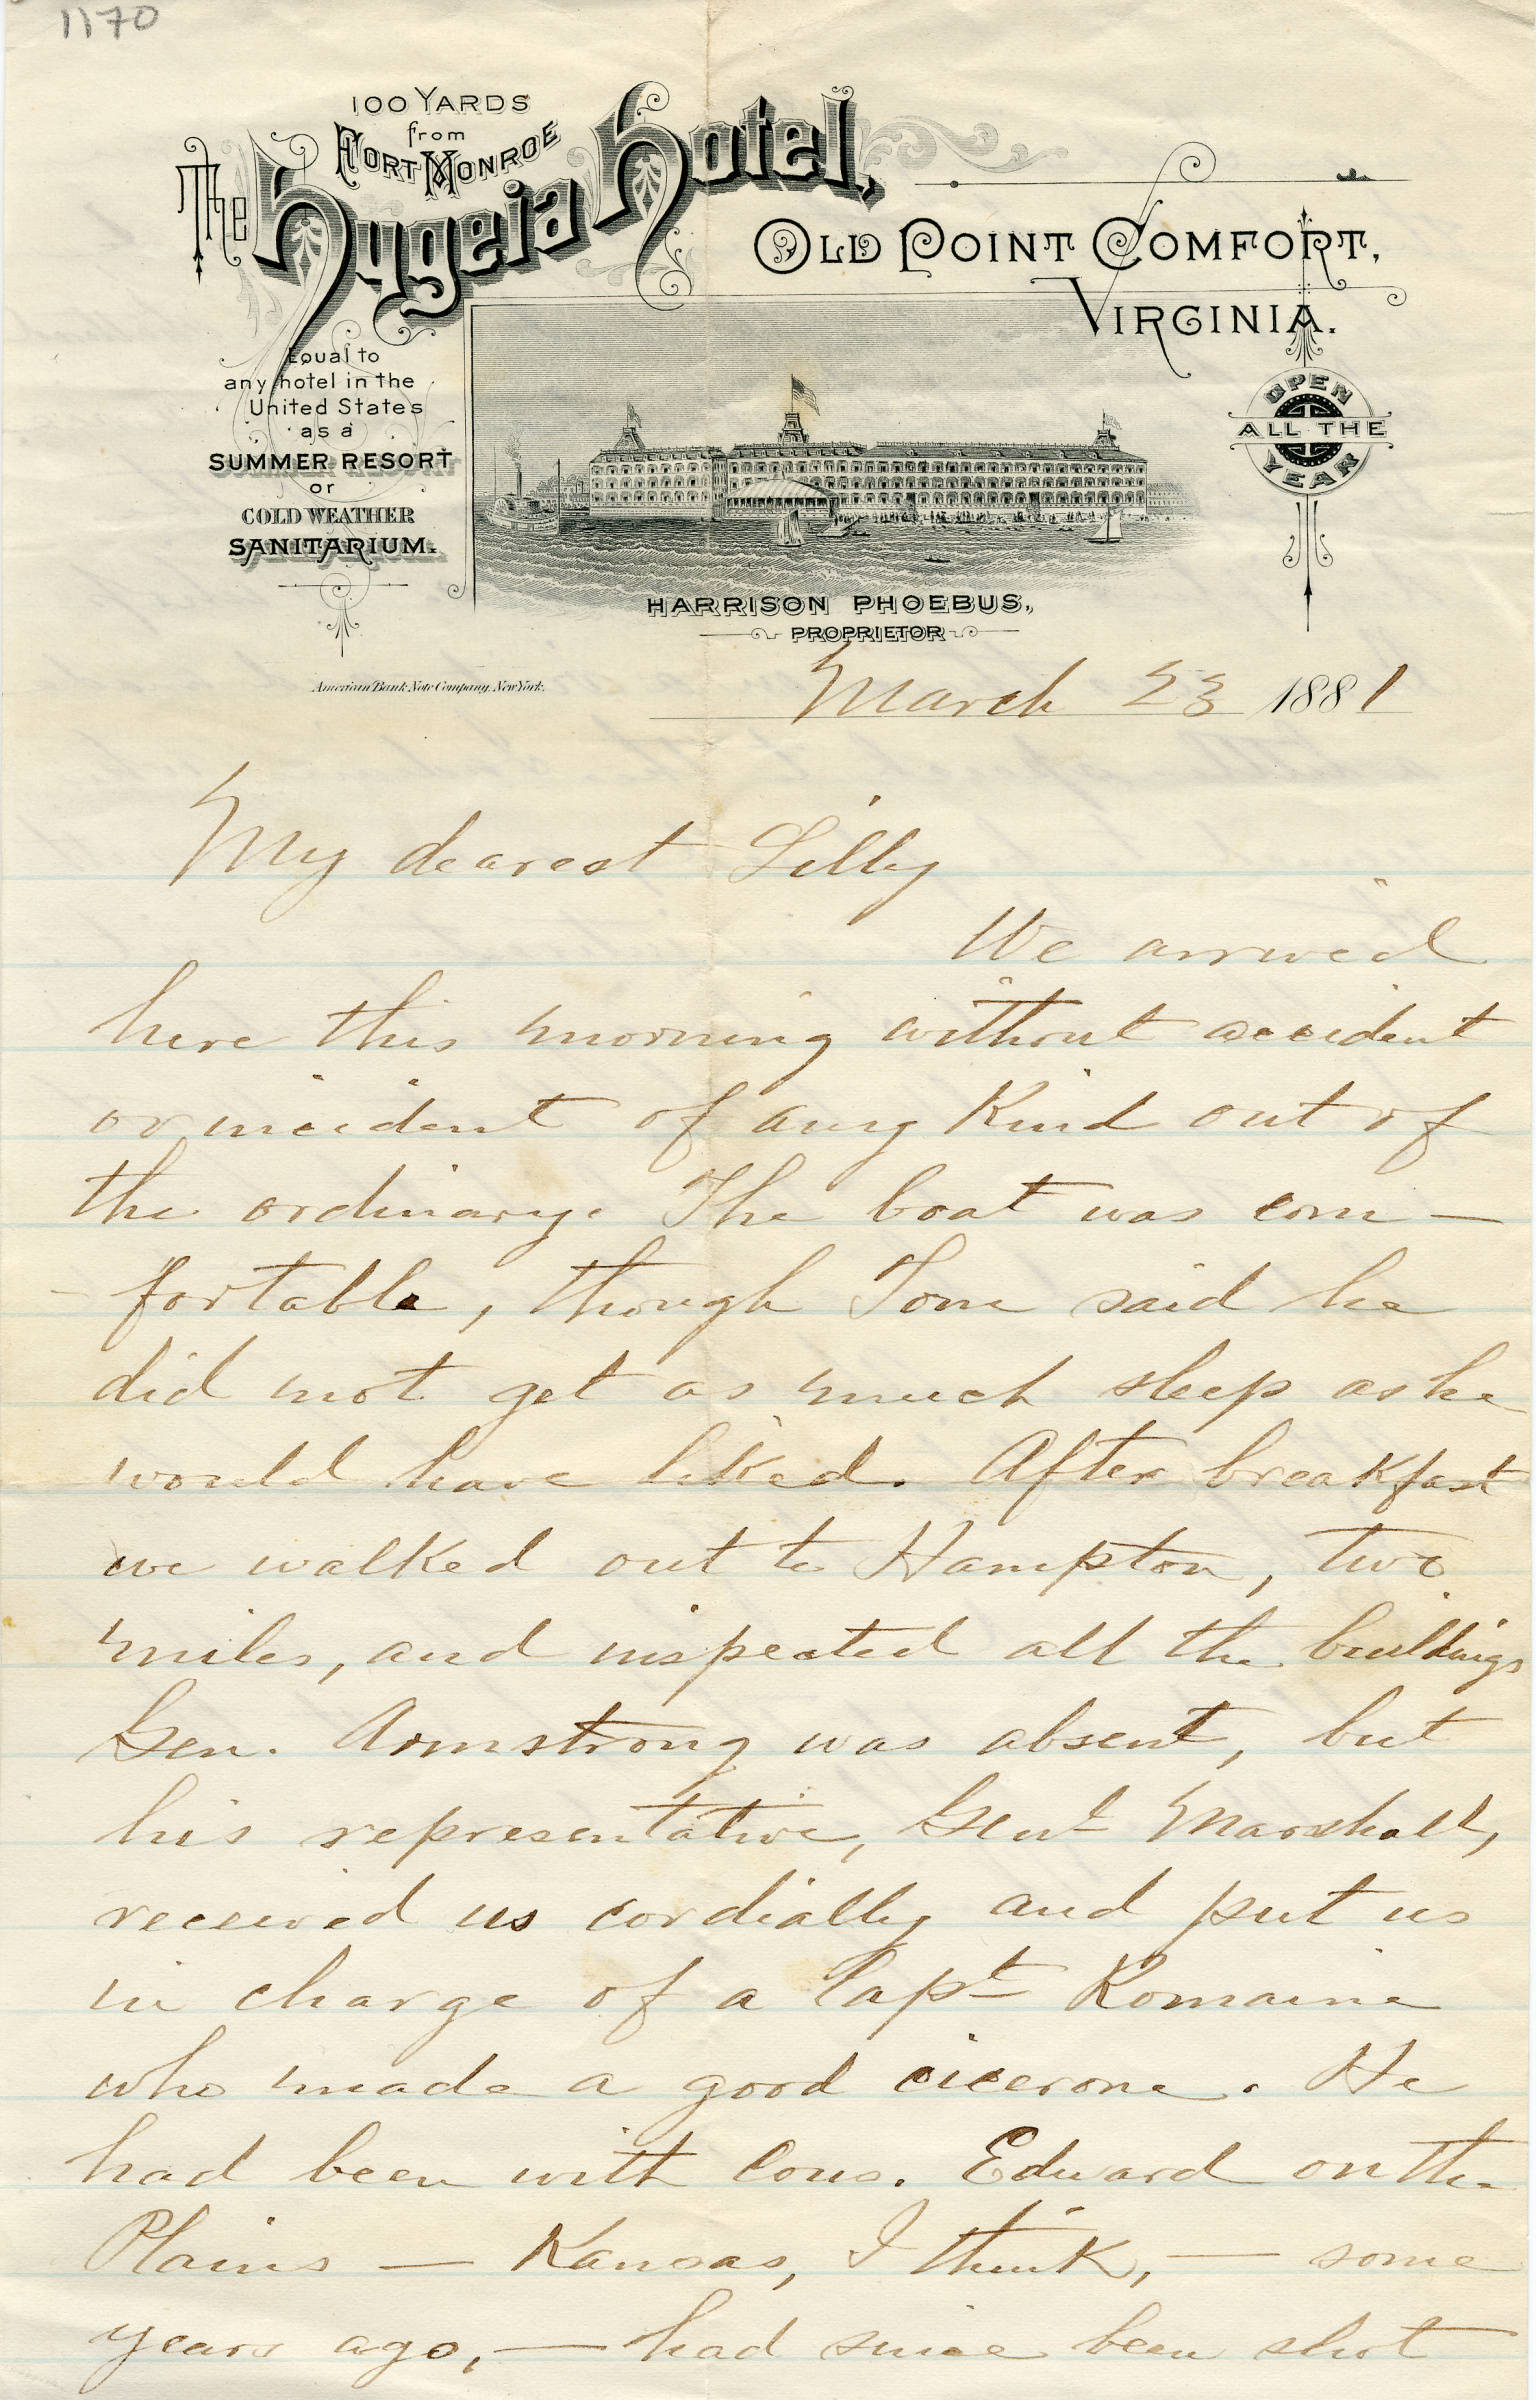 1170
100 YARDS
from
FORT MONROE
The Hygeia Hotel,
OLD POINT COMFORT,
VIRGINIA.
Equal to
any hotel in the
United States
as a
SUMMER RESORT
or
COLD WEATHER
SANITARIUM.
OPEN
ALL THE
YEAR
HARRISON PHOEBUS,
PROPRIETOR
American Bank Note Company, New York.
March 23 1881
My dearest Lilly
We arrived
here this morning without accident
or incident of any Kind out of
the ordinary. The boat was com –
– fortable, though Tom said he
did not get as much sleep as he
would have liked. After breakfast
we walked out to Hampton, two
miles, and inspected all the buildings
Gen. Armstrong was absent, but
his representative, Genl Marshall,
received us cordially and put us
in charge of a Capt Romaine
who made a good cicerone. He
had been with Cous. Edward on the
Plains — Kansas, I think, — some
years ago, — had since been shot